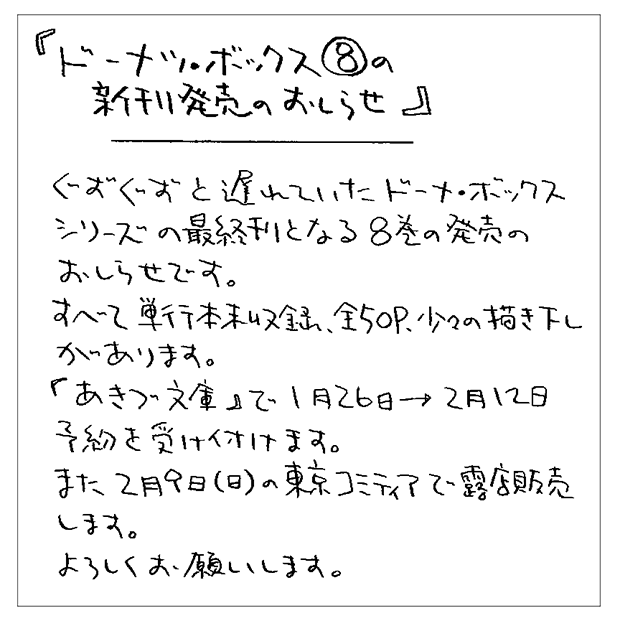 『ドーナツ・ボックス⑧の
新刊発売のおしらせ』
ぐずぐずと遅れていたドーナツ・ボックス
シリーズの最終刊となる8巻の発売の
おしらせです。
すべて単行本未収録、全50P、少々の描き下し
があります。
『あきづ文庫』で1月26日→2月12日
予約を受け付けます。
また2月9日(日)の東京コミティアで露店販売
します。
よろしくお願いします。